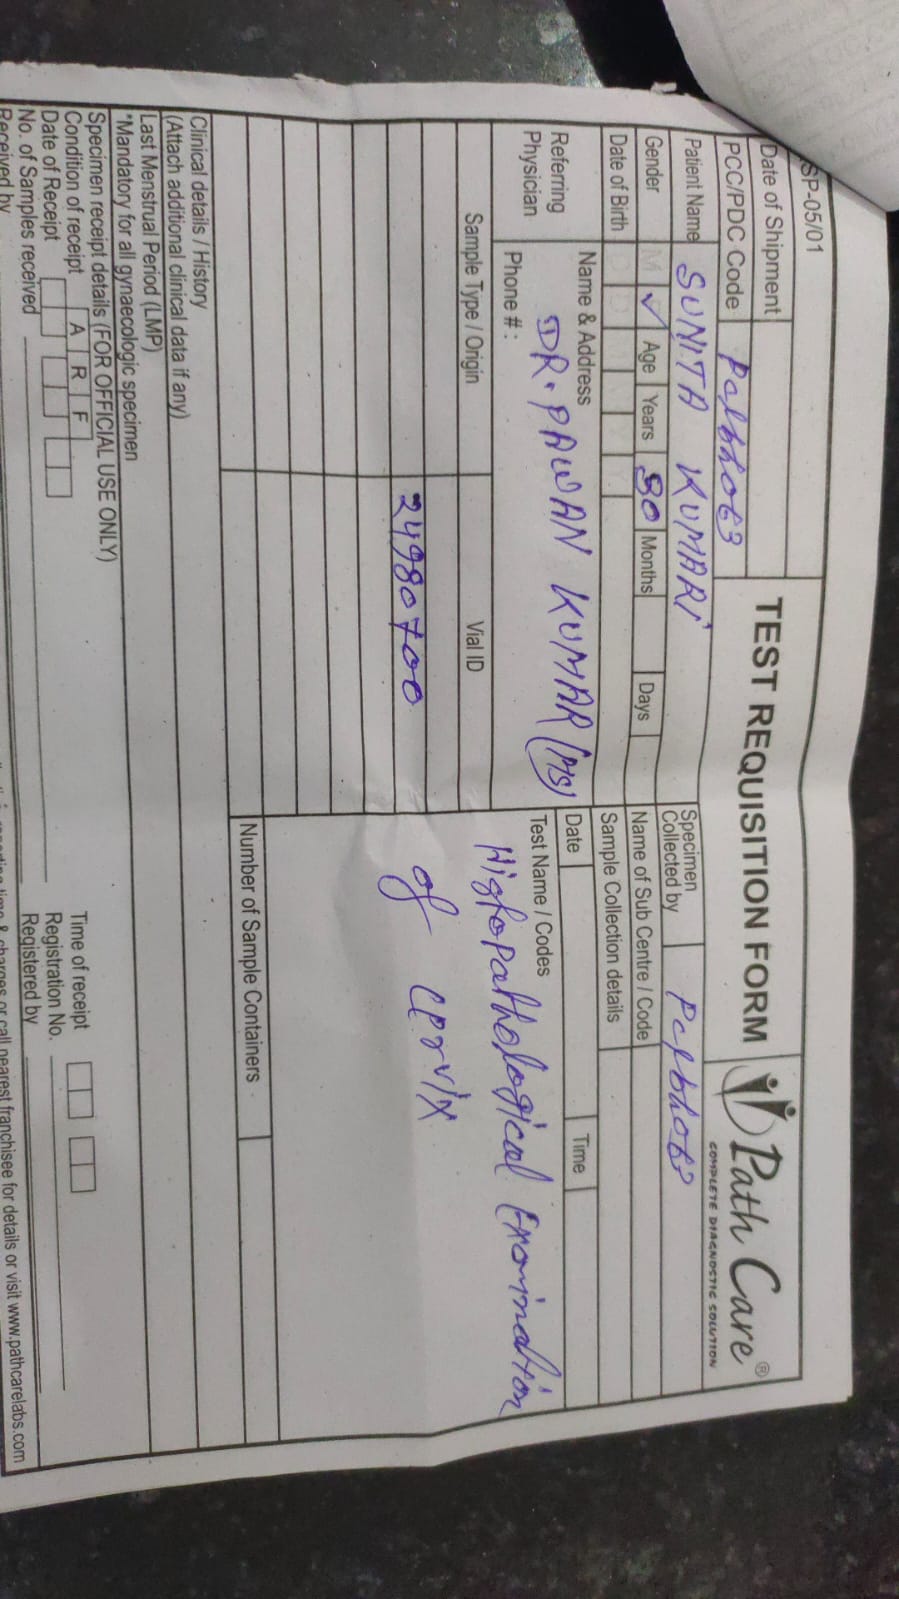 SP-05/01
Date of Shipment
PCC/PDC Code
TEST REQUISITION FORM
Path Care®
COMPLETE DIAGNOSTIC SOLUTION
Patient Name SUNITA KUMARI
Specimen Collected by
Gender M ✓ Age Years 30 Months Days
Name of Sub Centre / Code
Date of Birth
Sample Collection details
Referring Physician
Name & Address
DR. PAWAN KUMAR (MS)
Phone # :
Date Time
Test Name / Codes
Histopathological Examination
of cervix
Sample Type / Origin Vial ID
24980700
Number of Sample Containers
Clinical details / History
(Attach additional clinical data if any)
Last Menstrual Period (LMP)
*Mandatory for all gynaecologic specimen
Specimen receipt details (FOR OFFICIAL USE ONLY)
Condition of receipt A R F
Date of Receipt
Time of receipt
No. of Samples received
Registration No.
Received by
Registered by
charges or call nearest franchisee for details or visit www.pathcarelabs.com